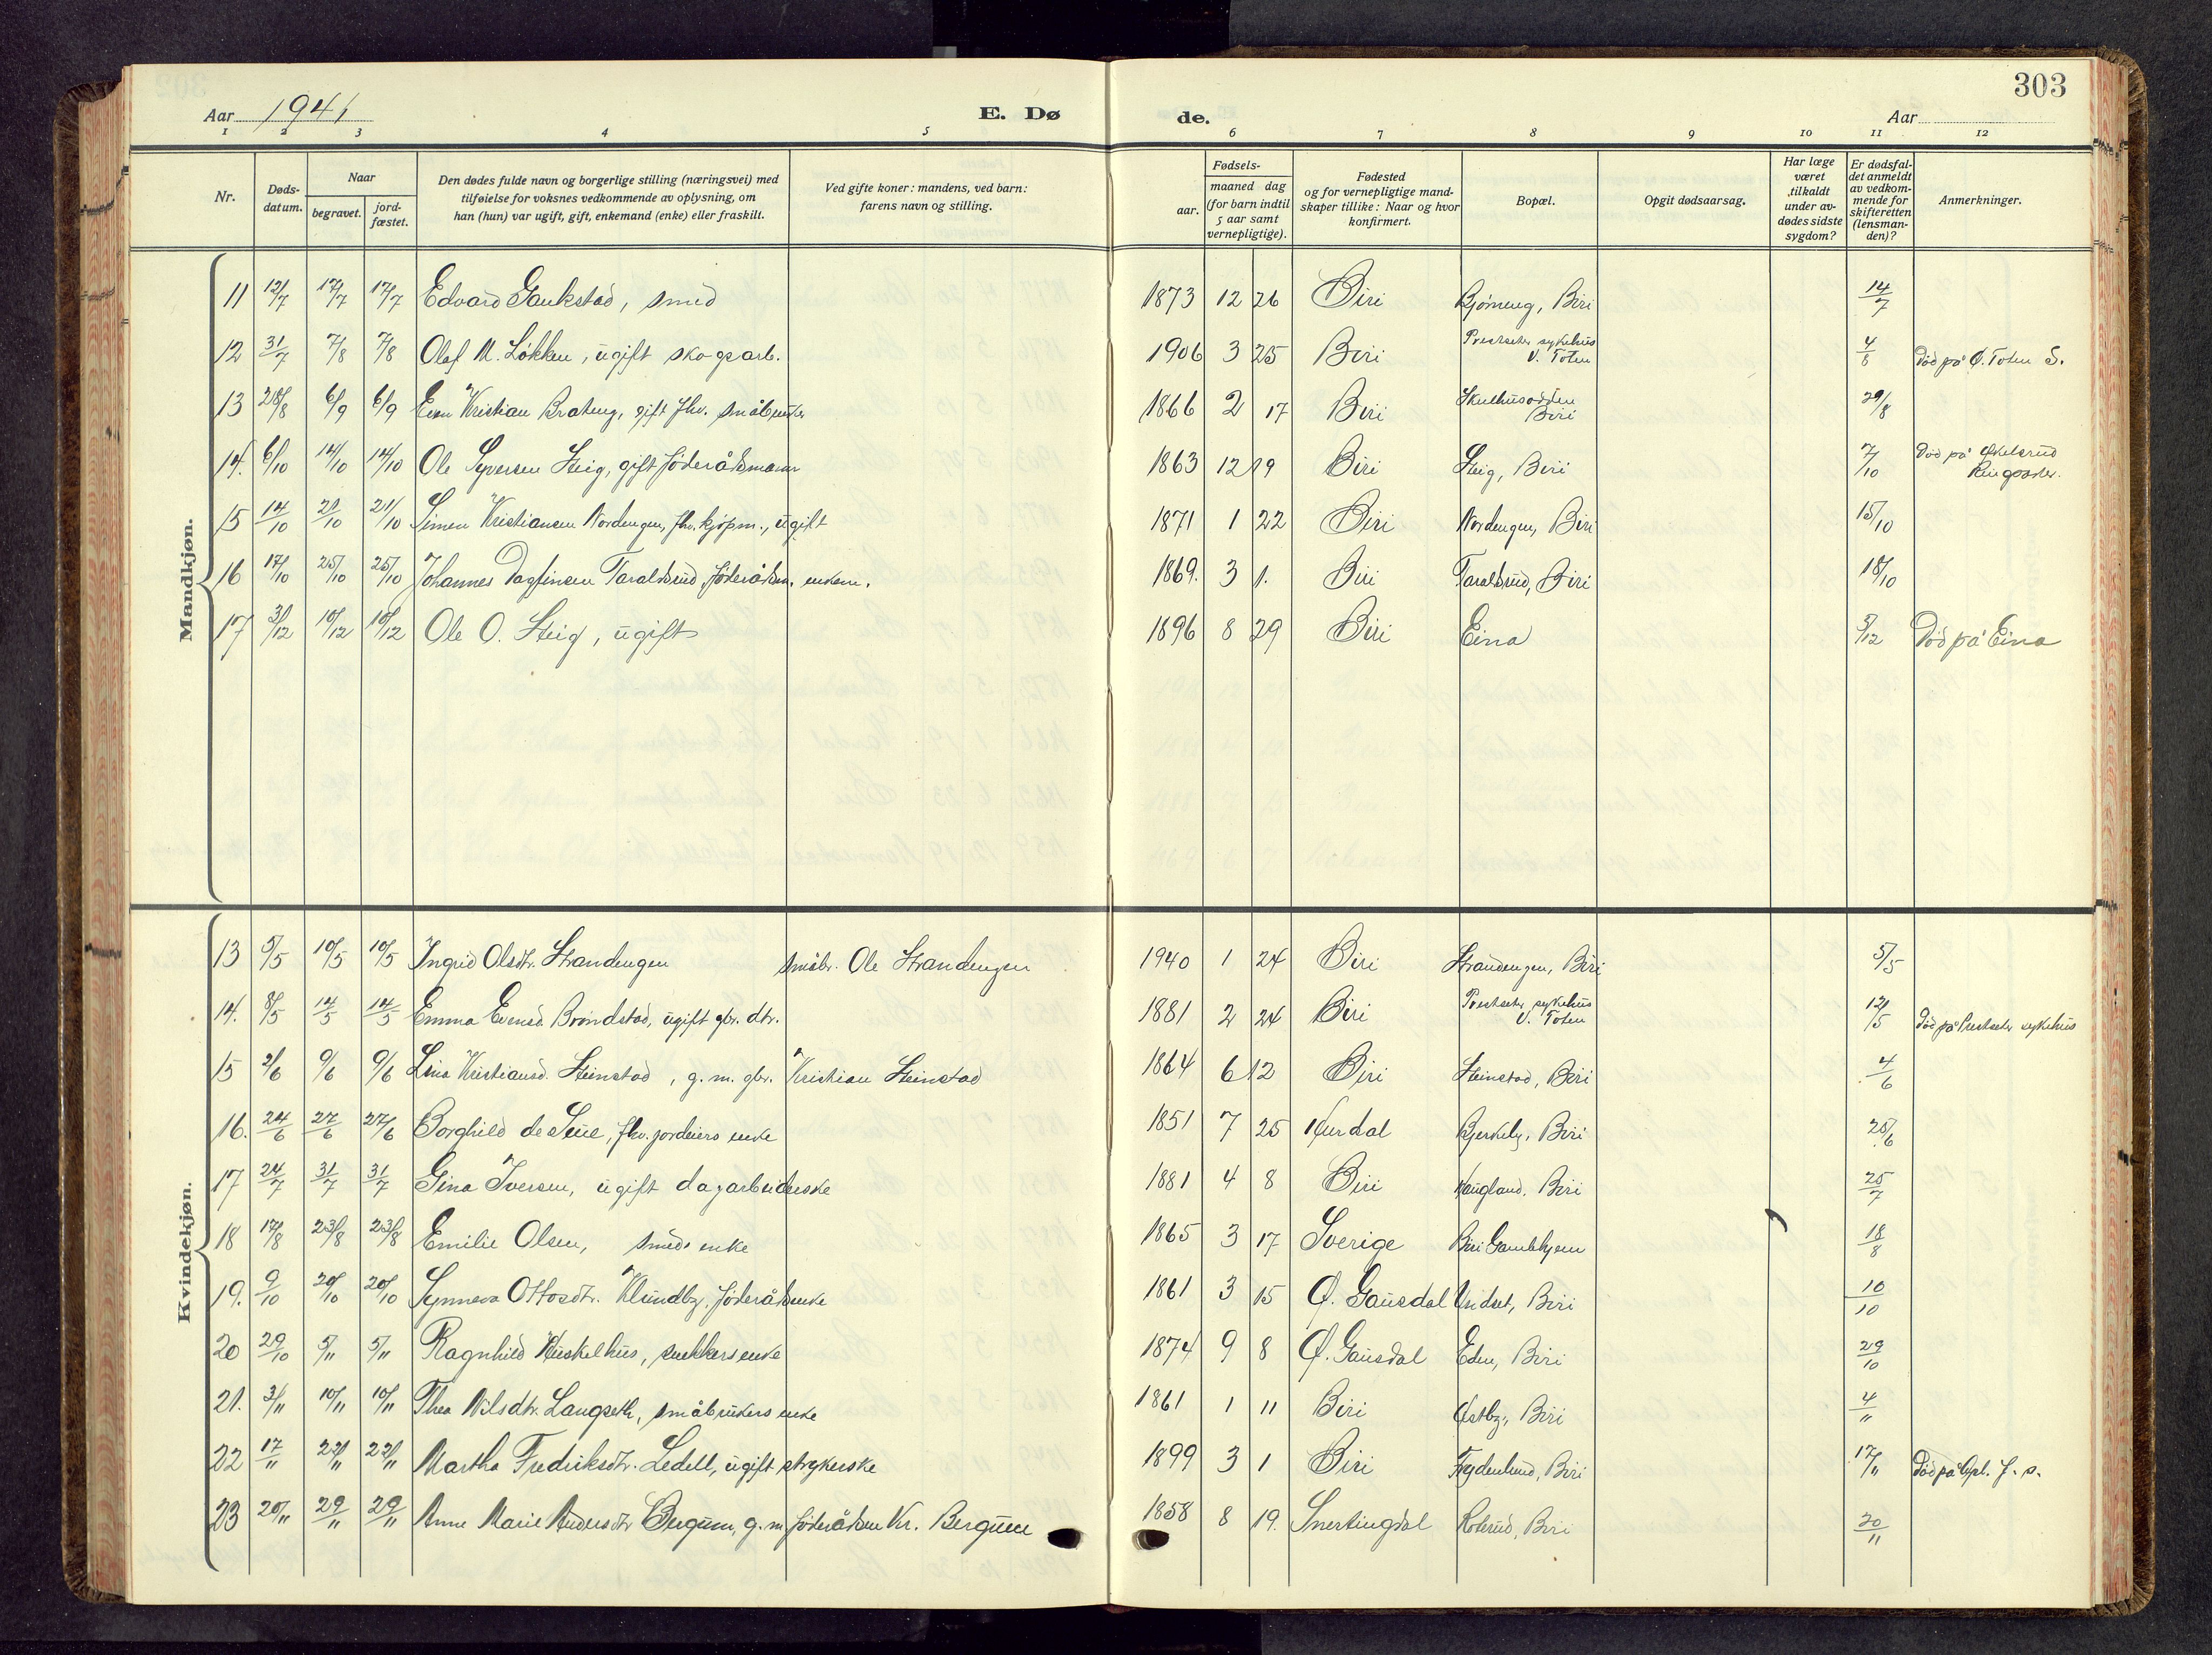 303
Aar 1941
E. Dø
de.
Aar
1 2 3 4 5 6 7 8 9 10 11 12
Nr.
Døds-
datum.
Naar
begravet.
jord-
fæstet.
Den dødes fulde navn og borgerlige stilling (næringsvei) med
tilføielse for voksnes vedkommende av oplysning, om
han (hun) var ugift, gift, enkemand (enke) eller fraskilt.
Ved gifte koner: mandens, ved barn:
farens navn og stilling.
Fødsels-
aar.
maaned dag
(for barn indtil
5 aar samt
vernepligtige).
Fødested
og for vernepligtige mand-
skaper tillike: Naar og hvor
konfirmert.
Bopæl.
Opgit dødsaarsag.
Har læge
været
tilkaldt
under av-
dødes sidste
sygdom?
Er dødsfal-
det anmeldt
av vedkom-
mende for
skifteretten
(lensman-
den)?
Anmerkninger.
Mandkjøn.
11 12/7 17/7 17/7 Edvard Gaukstad, smed 1873 12 26 Biri Bjørneng, Biri 14/7
12 31/7 7/8 7/8 Olaf M. Løkken, ugift skogsarb. 1906 3 25 Biri Prestseter sykehus V. Toten 4/8 Död på Ø. Toten S.
13 28/8 6/9 6/9 Even Kristian Brateng, gift fhv. småbruker 1866 2 17 Biri Skulhusodden Biri 29/8
14. 6/10 14/10 14/10 Ole Syversen Steig, gift föderådsmann 1863 12 19 Biri Steig, Biri 7/10 Död på Ringsaker.
15 14/10 21/10 21/10 Simen Kristiansen Nordengen, fhv. kjøpm., ugift 1871 1 22 Biri Nordengen, Biri 15/10
16 17/10 25/10 25/10 Johannes Dagfinsen Taraldsrud, föderådsm. enkem. 1869. 3 1. Biri Taraldsrud, Biri 18/10
17 3/12 10/12 10/12 Ole O. Steig, ugift 1896 8 29 Biri Eina 5/12 Död på Eina
Kvindekjøn.
13 5/5 10/5 10/5 Ingrid Olsdtr. Strandengen småbr. Ole Strandengen 1940 1 24 Biri Strandengen, Biri 5/5
14. 8/5 14/5 14/5 Emma Evensd. Bröndstad, ugift gbr. dtr. 1881 2 24 Biri Prestseter sykehus V. Toten 12/5 Död på Prestseter sykehus
15 2/6 9/6 9/6 Lina Kristiansd. Steinstad, g. m. gbr. Kristian Steinstad 1864 6 12 Biri Steinstad, Biri 4/6
16. 24/6 27/6 27/6 Borghild de Seue, fhv. jordeiers enke 1851 7 25 Hurdal Bjerkely, Biri 25/6
17 24/7 31/7 31/7 Gina Iversen, ugift dagarbeiderske 1881 4 8 Biri Haugland. Biri 25/7
18 17/8 23/8 23/8 Emilie Olsen, smeds enke 1865 3 17 Sverige Biri Gamlehjem 18/8
19. 9/10 20/10 20/10 Synneva Ottosdtr. Klundby. föderådsenke 1861 3 15 Ø. Gausdal Undset, Biri 10/10
20 29/10 5/11 5/11 Ragnhild Huskelhus, snekkers enke 1874 9 8 Ø. Gausdal Eden, Biri 29/10
21. 3/11 10/11 10/11 Thea Nilsdtr. Langseth, småbrukers enke 1861 1 11 Biri Østby, Biri 4/11
22 17/11 22/11 22/11 Martha Fredriksdtr. Ledell, ugift strykerske 1899 3 1 Biri Frydenlund, Biri 17/11 Död på
23 20/11 29/11 29/11 Anne Marie Andersdtr Bergum, g. m föderådsm Kr. Bergum 1858 8 19. Snertingdal Roterud, Biri 20/11